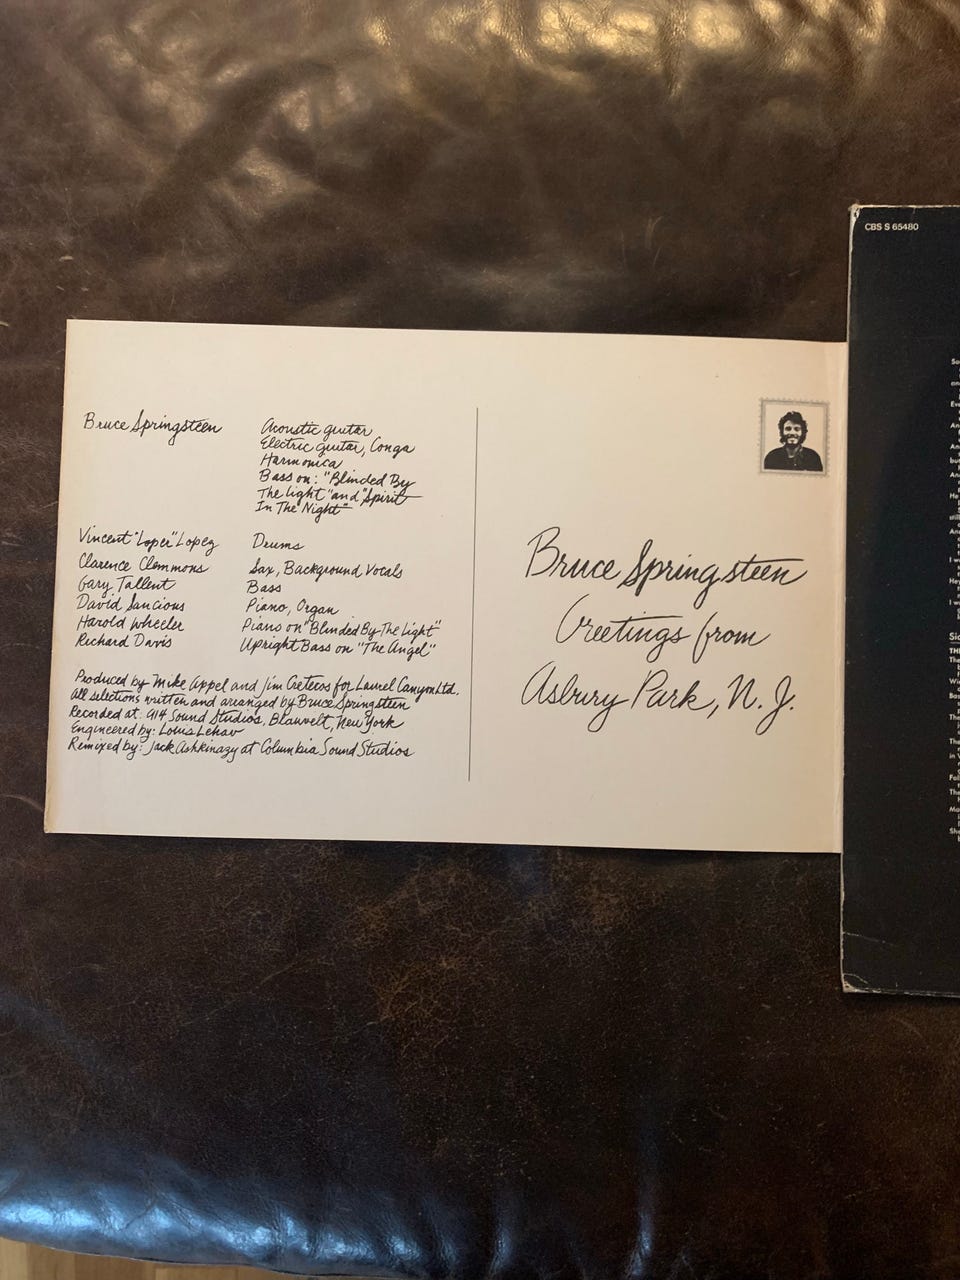 CBS S 65480
Bruce Springsteen Acoustic guitar
Electric guitar, Conga
Harmonica
Bass on: "Blinded By
The Light" and "Spirit
In The Night"
Vincent "Loper" Lopez Drums
Clarence Clemmons Sax, Background Vocals
Gary Tallent Bass
David Sancious Piano, Organ
Harold Wheeler Piano on "Blinded By The Light"
Richard Davis Upright Bass on "The Angel"
Produced by Mike Appel and Jim Cretecos for Laurel Canyon Ltd.
All selections written and arranged by Bruce Springsteen
Recorded at: 914 Sound Studios, Blauvelt, New York
Engineered by: Louis Lehav
Remixed by: Jack Ashkinazy at Columbia Sound Studios
Bruce Springsteen
Greetings from
Asbury Park, N. J.